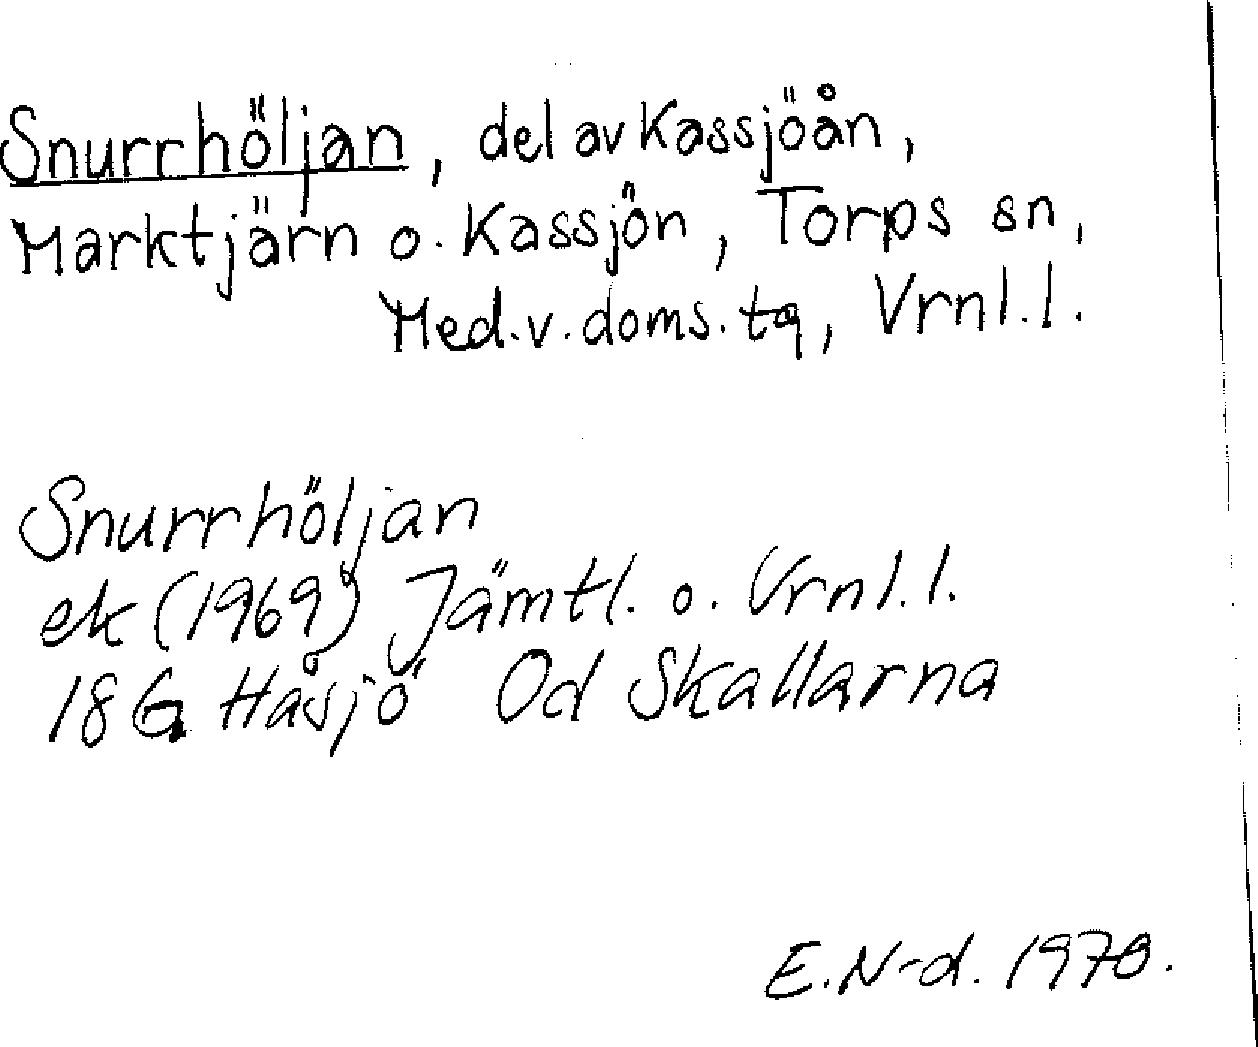 Snurrhöljan, del av Kassjöån,
Marktjärn o. Kassjön, Torps sn,
Med.v.doms.tg, Vrnl.l.
Snurrhöljan
ek (1969) Jämtl. o. Vrnl.l.
18G Håsjö Od Skallarna
E.N-d. 1970.